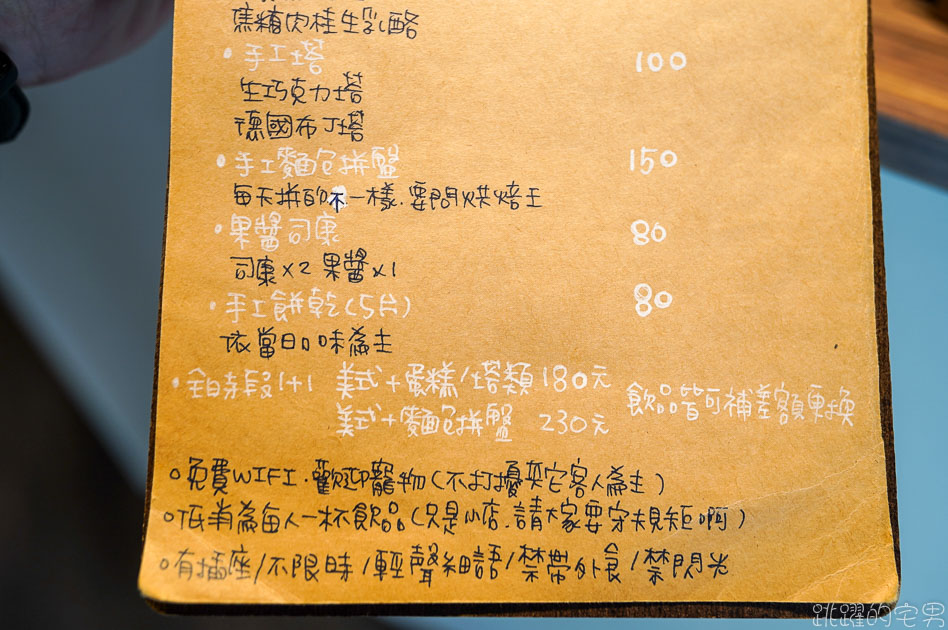 焦糖肉桂生乳酪
・手工塔 100
生巧克力塔
德國布丁塔
・手工麵包拼盤 150
每天拼的不一樣.要問烘焙王
・果醬司康 80
司康×2 果醬×1
・手工餅乾(5片) 80
依當日口味為主
・全時段1+1 美式+蛋糕/塔類180元 飲品皆可補差額更換
美式+麵包拼盤 230元
。免費WIFI.歡迎寵物(不打擾其它客人為主)
。低消為每人一杯飲品(只是小店.請大家要守規矩啊)
。有插座/不限時/輕聲細語/禁帶外食/禁閃光
跳躍的宅男